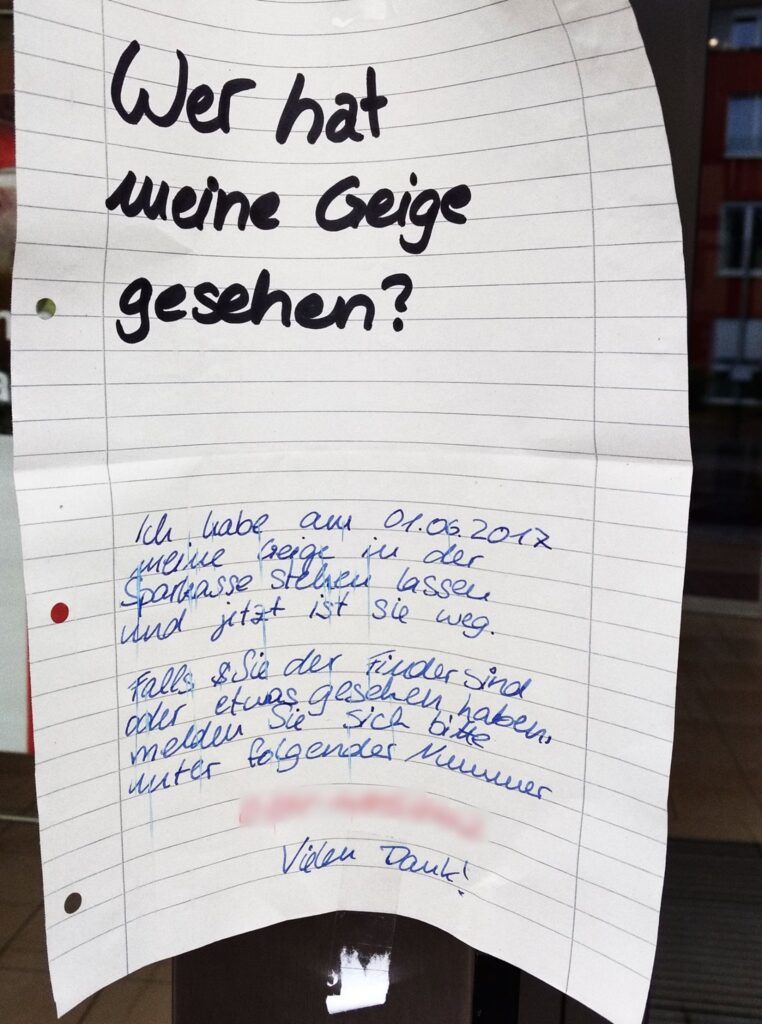 Wer hat
meine Geige
gesehen?
Ich habe am 01.06.2017
meine Geige in der
Sparkasse stehen lassen
und jetzt ist sie weg.
Falls Sie der Finder sind
oder etwas gesehen haben,
melden Sie sich bitte
unter folgender Nummer
Vielen Dank!